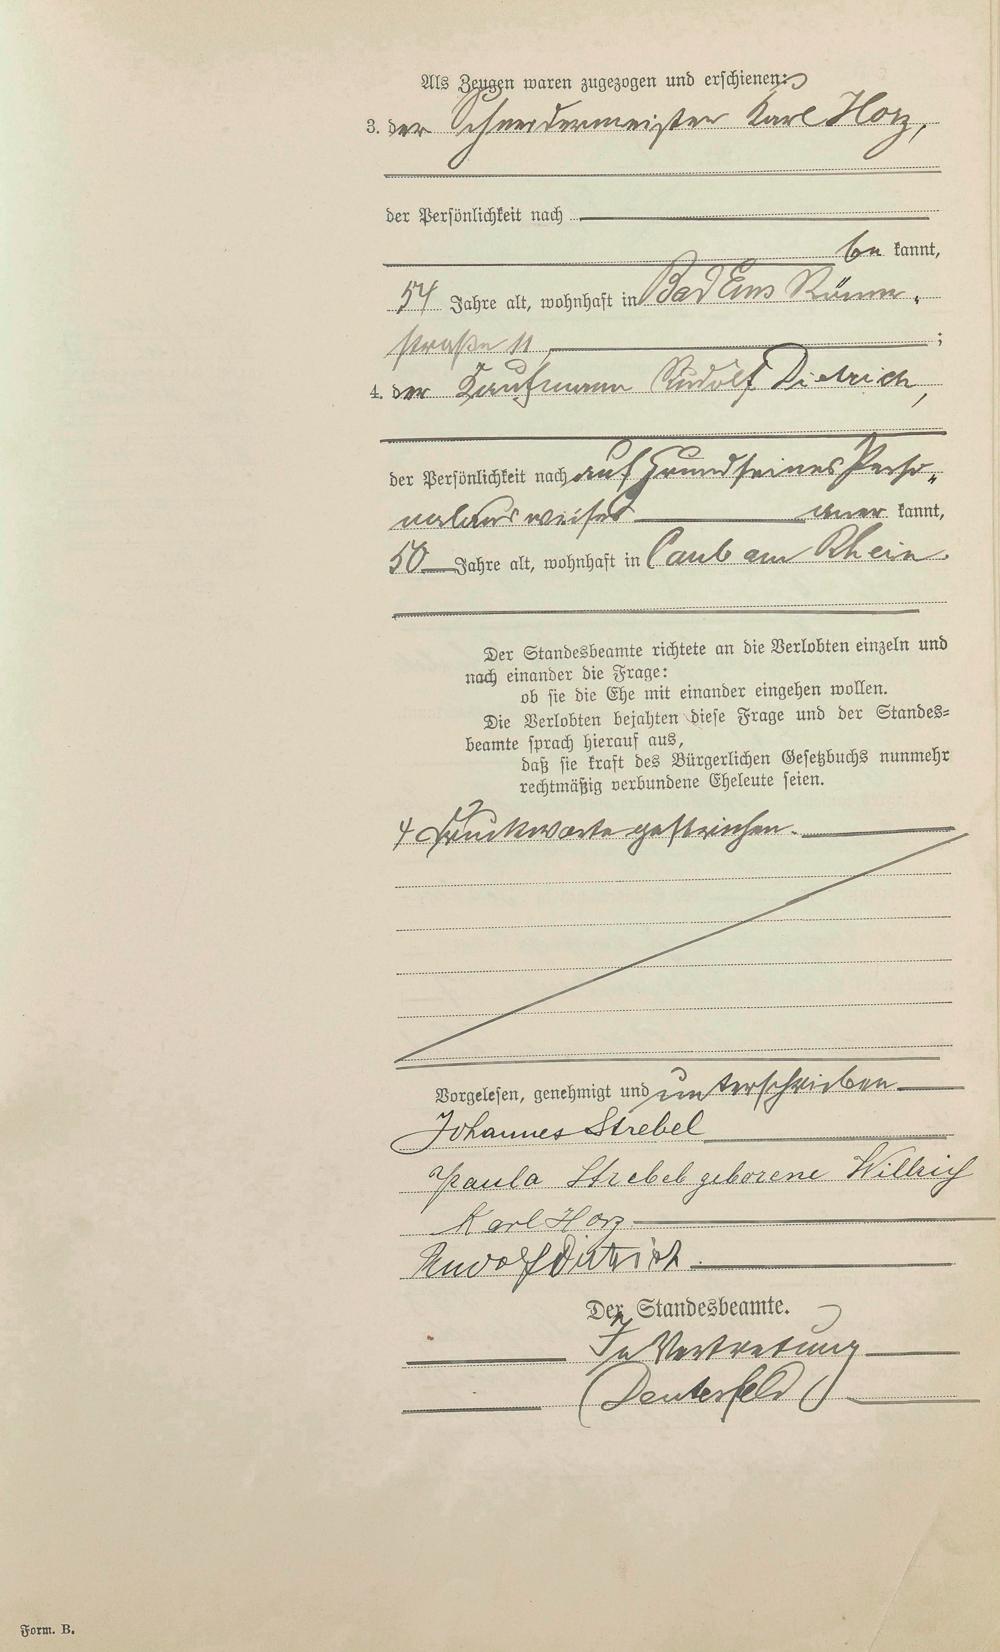 Als Zeugen waren zugezogen und erschienen:
3. der Schneidermeister Karl Horz,
der Persönlichkeit nach
be kannt,
54 Jahre alt, wohnhaft in Bad Ems Römer-
straße 11 ;
4. der Kaufmann Rudolf Dietrich,
der Persönlichkeit nach auf Grund seines Perso-
nalausweises aner kannt,
50 Jahre alt, wohnhaft in Caub am Rhein.
Der Standesbeamte richtete an die Verlobten einzeln und
nach einander die Frage:
ob sie die Ehe mit einander eingehen wollen.
Die Verlobten bejahten diese Frage und der Standes-
beamte sprach hierauf aus,
daß sie kraft des Bürgerlichen Gesetzbuchs nunmehr
rechtmäßig verbundene Eheleute seien.
4 Druckworte gestrichen.
Vorgelesen, genehmigt und unterschrieben
Johannes Strebel
Paula Strebel geborene Willrich
Karl Horz
Rudolf Dietrich.
Der Standesbeamte.
In Vertretung
Form. B.